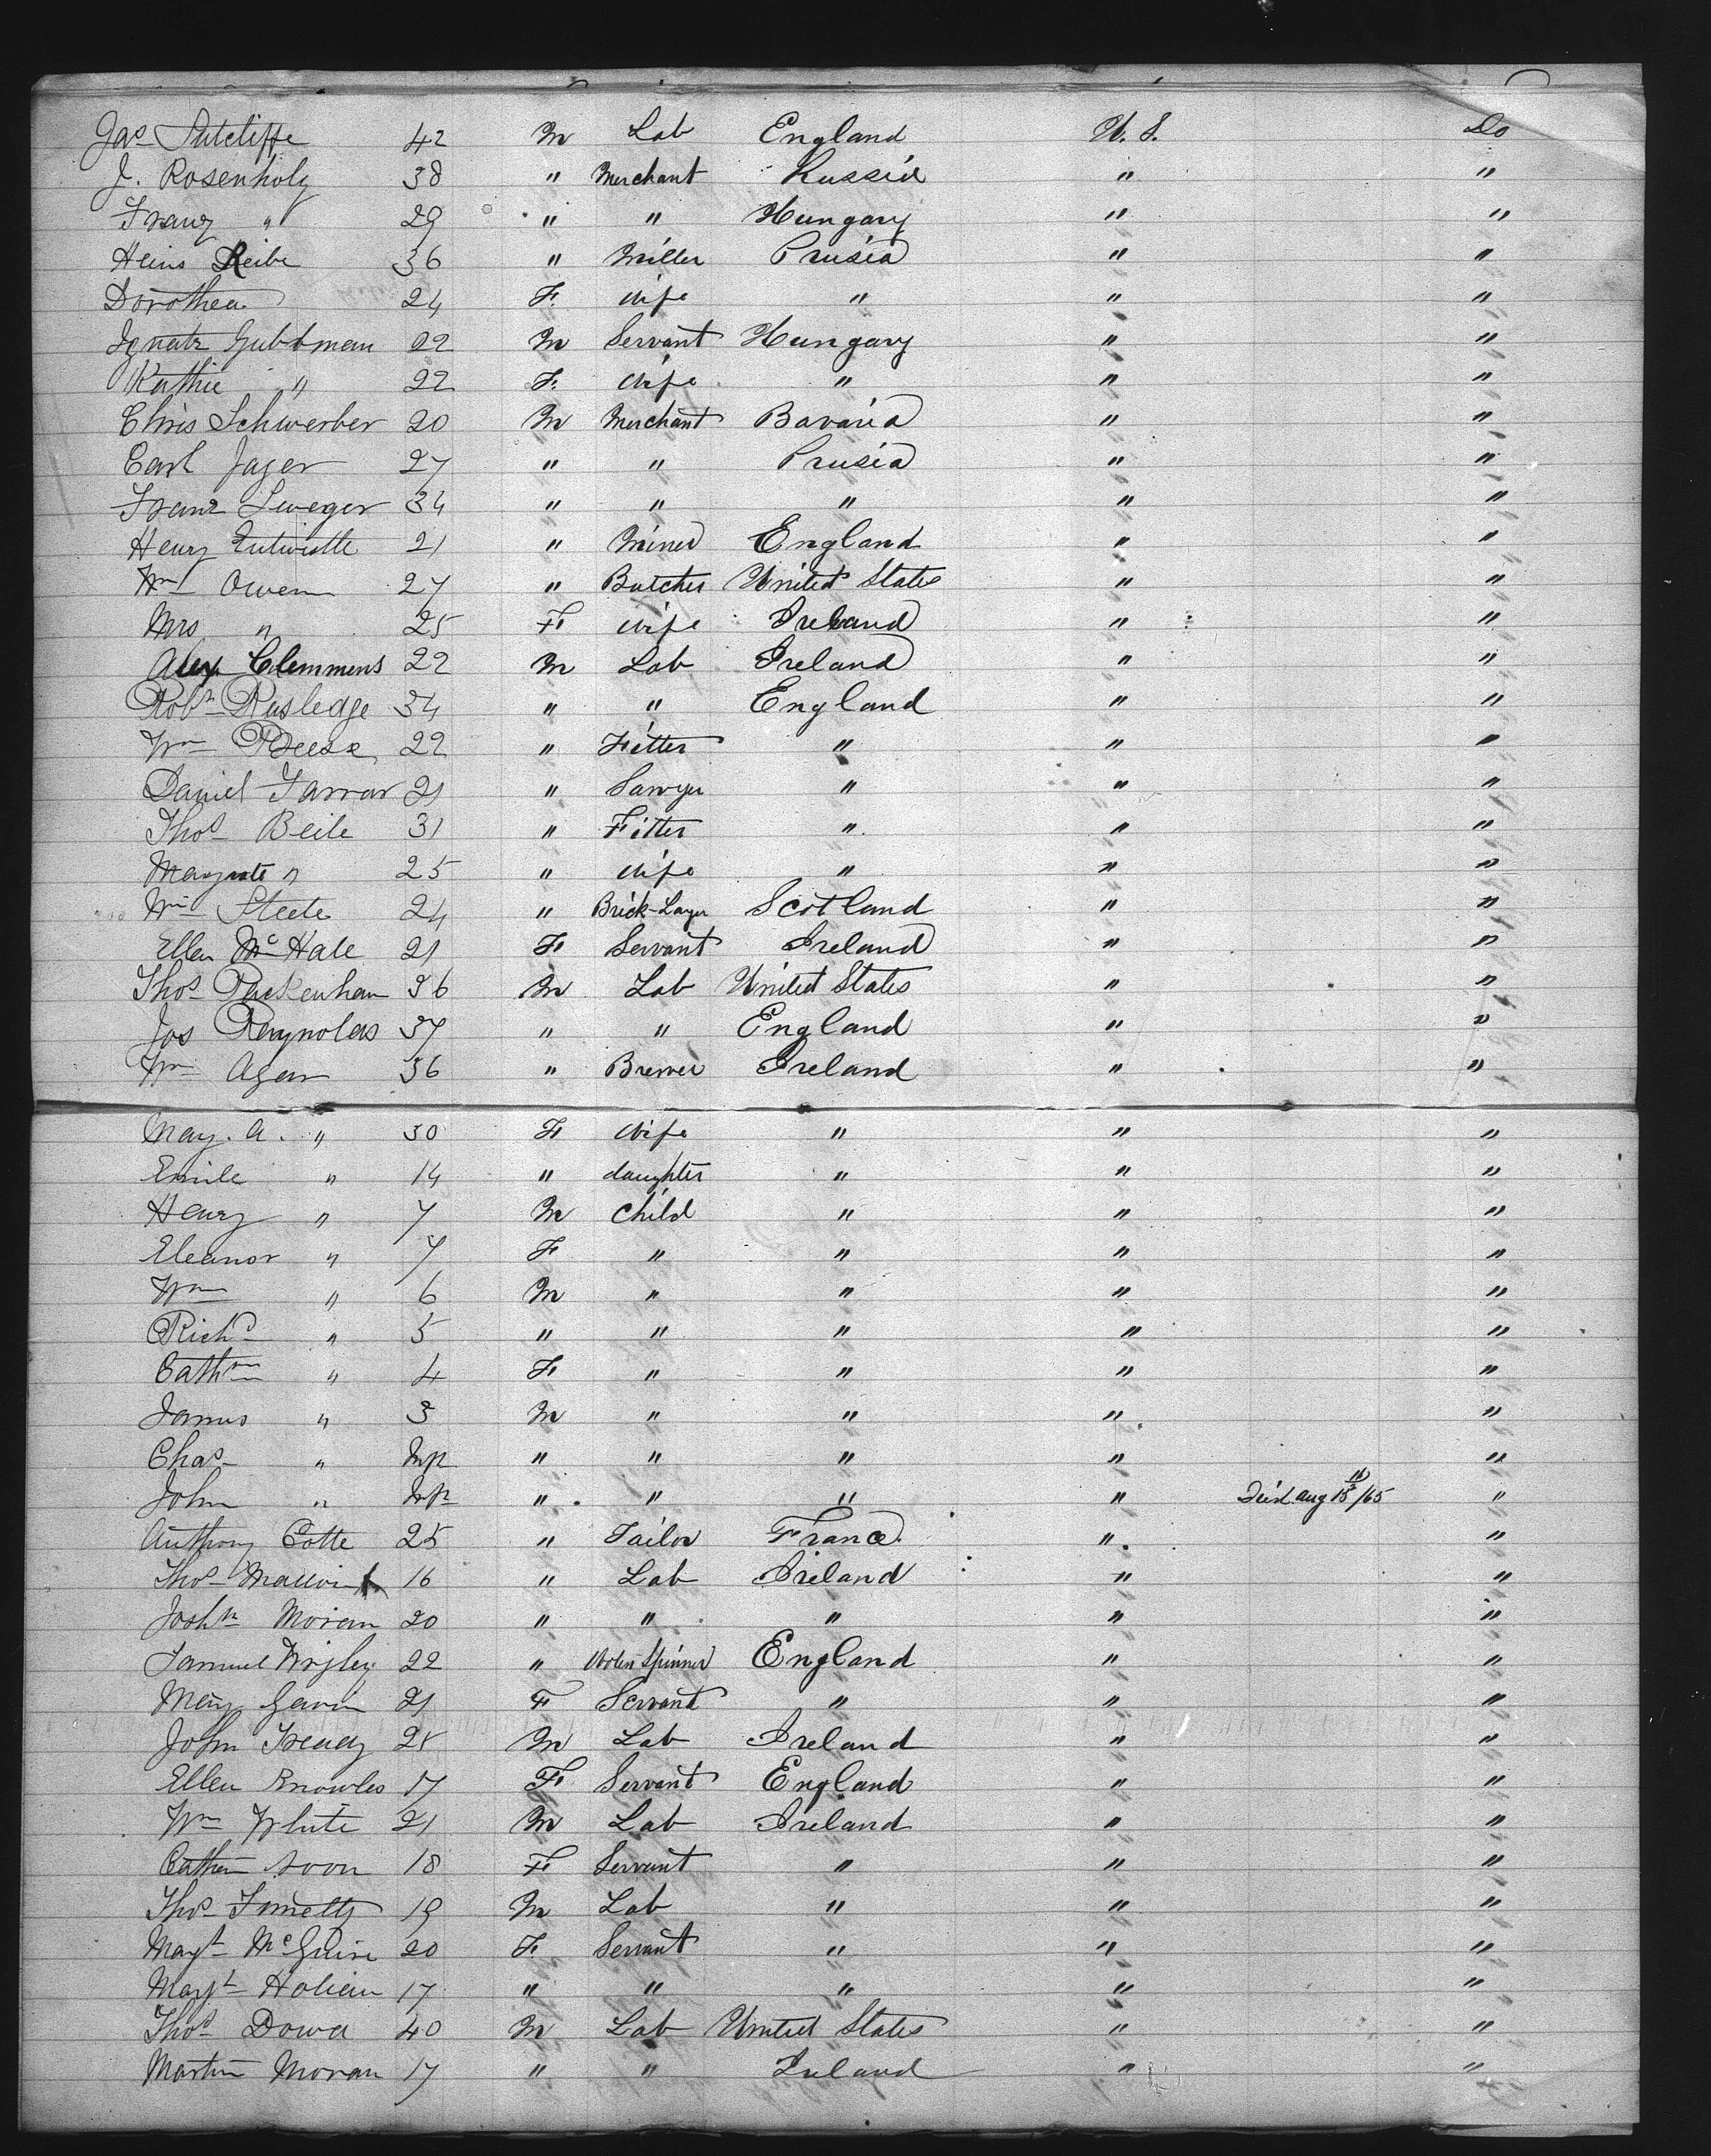 Jas Sutcliffe 42 M Lab England U. S. Do
J. Rosenholz 38 " Merchant Russia " "
Franz " 29 " " Hungary " "
Heins Reibe 36 " Miller Prusia " "
Dorothea 24 F. wife " " "
Ignatz Guttman 22 M Servant Hungary " "
Kathie " 22 F. wife " " "
Chris Schwerber 20 M Merchant Bavaria " "
Carl Jager 27 " " Prusia " "
Franz Sweger 34 " " " " "
Henry Entwistle 21 " Miner England " "
Wm Owen 27 " Butcher United States " "
Mrs " 25 F wife Ireland " "
Alex Clemmens 22 M Lab Ireland " "
Robt Rusledge 34 " " England " "
Wm Reese 22 " Fitter " " "
Daniel Farrar 21 " Sawyer " " "
Thos Beile 31 " Fitter " " "
Margrate " 25 " wife " " "
Wm Steele 24 " Brick-Layer Scotland " "
Ellen McHale 21 F Servant Ireland " "
Thos Packenham 36 M Lab United States " "
Jos Raynolds 37 " " England " "
Wm Agar 36 " Brewer Ireland " "
Mary. A. " 30 F wife " " "
Emile " 14 " daughter " " "
Henry " 7 M child " " "
Eleanor " 7 F " " " "
Wm " 6 M " " " "
Richd " 5 " " " " "
Cathrn " 4 F " " " "
James " 3 M " " " "
Chas " " " " " "
John " " " " " Died Aug /65 "
Anthony Cotte 25 " Tailor France " "
Thos 16 " Lab Ireland " "
Joshh Moran 20 " " " " "
Samuel Wrigley 22 " Wolen Spinner England " "
Mary Gavin 21 F Servant " " "
John 25 M Lab Ireland " "
Ellen Knowles 17 F Servant England " "
Wm White 21 M Lab Ireland " "
Cathrn 18 F Servant " " "
Thos 19 M Lab " " "
Magt McGuire 20 F Servant " " "
Margt 17 " " " " "
Thos Dowd 40 M Lab United States " "
Martin Moran 17 " " Ireland " "